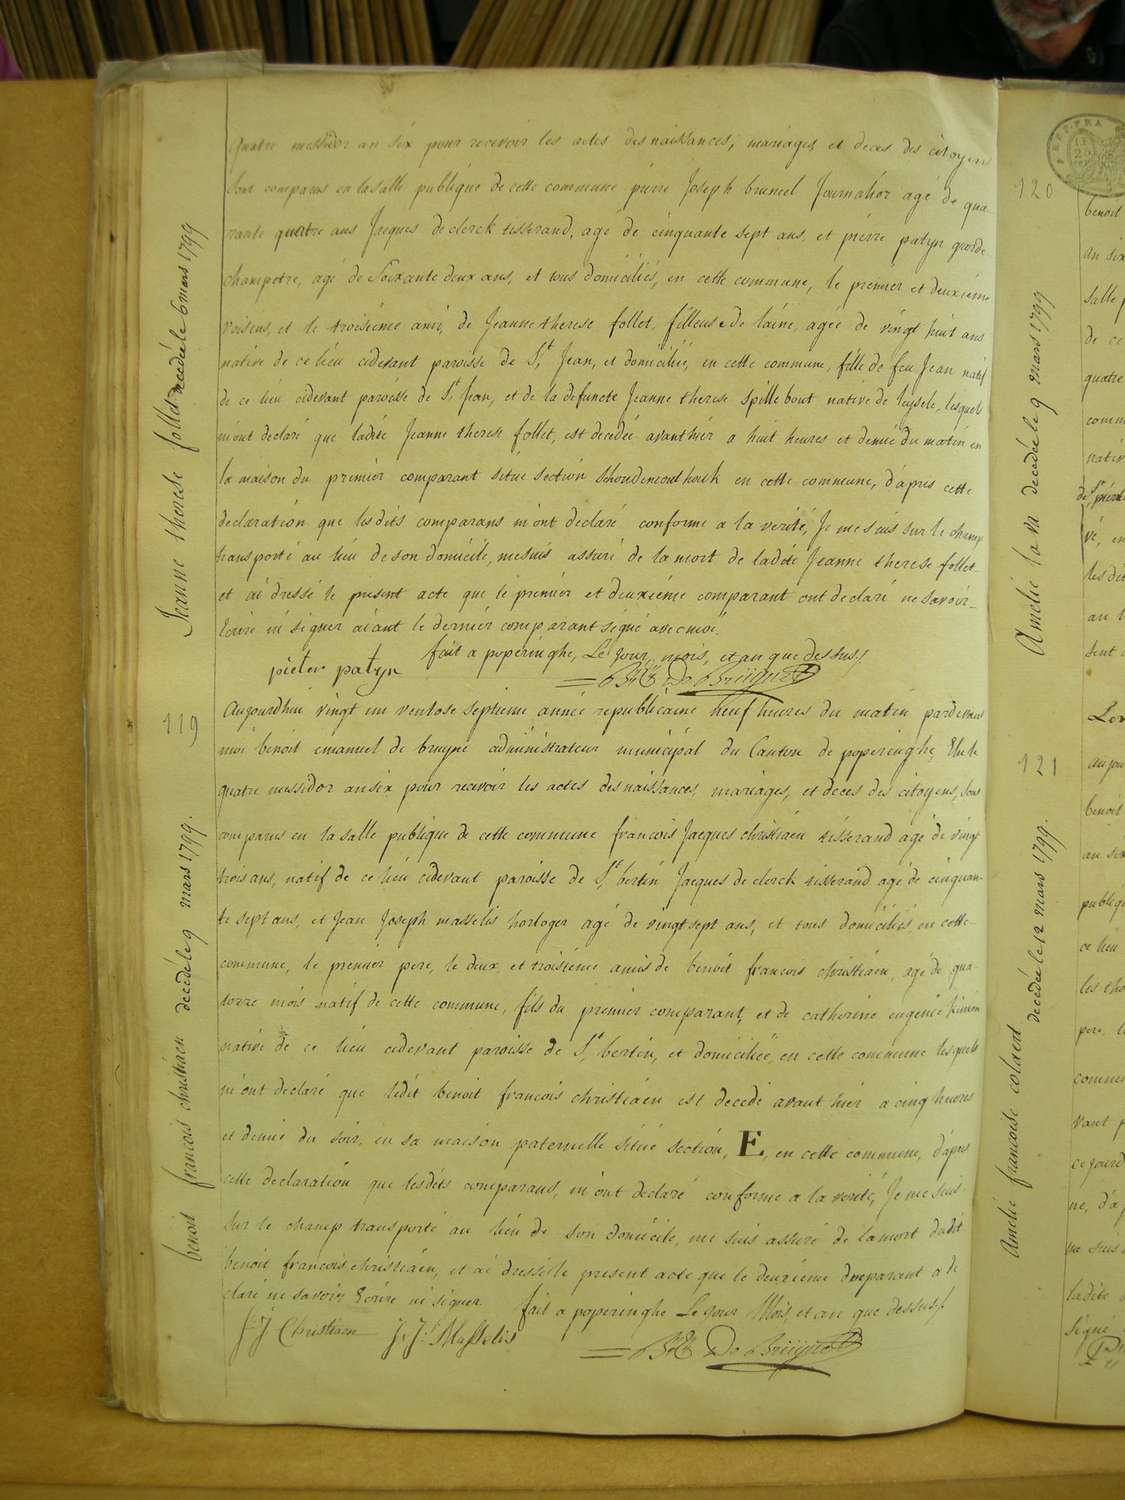 quatre messidor an six pour recevoir les actes des naissances, mariages, et deces des citoyens
sont comparus en la salle publique de cette commune pierre Joseph bruneel Journalier agé de qua-
rante quatre ans Jacques declerck tisserand, agé de cinquante sept ans, et pierre patyn garde
champetre, agé de Soixante deux ans, et tous domiciliés, en cette commune, le premier et deuxième
voisins, et le troisième ami, de Jeanne therese follet, filleuse de laine, agée de vingt huit ans
native de ce lieu cidevant paroisse de St Jean, et domiciliée, en cette commune, fille de feu Jean natif
de ce lieu cidevant paroisse de St Jean, et de la defuncte Jeanne therese spillebout native de leysele, lesquels
m'ont declaré que ladite Jeanne therese follet, est decedée avanthier a huit heures et demie du matin en
la maison du premier comparant situé section en cette commune, d'apres cette
declaration que lesdits comparans m'ont declaré conforme a la verité, Je me suis sur le champ
transporté au lieu de son domicile, me suis assuré de la mort de ladite Jeanne therese follet
et ai dressé le present acte que le premier et deuxième comparant ont declaré ne savoir
Ecrire ni signer aiant le dernier comparant signé avec moi.
fait a poperinghe, Le jour, mois, et an que dessus/.
pieter patyn
BE De Bruyne
Jeanne therese follet decédée le 6 mars 1799
119
Aujourdhui vingt un ventose septieme année republicaine neuf heures du matin pardevant
moi benoit emanuel de bruyne administrateur municipal du Canton de poperinghe, Elu le
quatre messidor an six pour recevoir les actes des naissances, mariages, et deces des citoyens, sont
comparus en la salle publique de cette commune francois Jacques christiaen tisserand agé de vingt
trois ans, natif de ce lieu cidevant paroisse de St bertin Jacques de clerck tisserand agé de cinquan-
te sept ans, et Jean Joseph masselis horloger agé de vingt sept ans, et tous domiciliés, en cette
commune, le premier pere, le deux, et troisième amis de benoit francois christiaen, agé de qua-
torze mois natif de cette commune, fils du premier comparant, et de catherine eugenie
native de ce lieu cidevant paroisse de St bertin, et domiciliée, en cette commune lesquels
m'ont declaré que ledit benoit francois christiaen est decedé avant hier a cinq heures
et demie du soir, en sa maison paternelle situé section, E, en cette commune, d'apres
cette declaration que lesdits comparans, m'ont declaré conforme a la verité, Je me suis
sur le champ transporté au lieu de son domicile, me suis assuré de la mort dudit
benoit francois christiaen, et ai dressé le present acte que le deuxieme comparant a de
claré ne savoir Ecrire ni signer fait a poperinghe Le jour Mois, et an que dessus/.
J J Christiaen J: J: Masselis
BE De Bruyne
benoit francois christiaen decédé le 9 mars 1799.
120
benoit
an six
salle p
de ce
quatre
comm
nativ
de St pierre
vé, en
lesdi
au
Amelie decedée le 9 mars 1799
121
aujou
benoit
an six
publiq
ce lieu
les tho
pere, l
commu
vant p
ce jourd
ne, d'a
me suis
ladite
signé
Amelie francoise colaert decédée le 12 mars 1799.